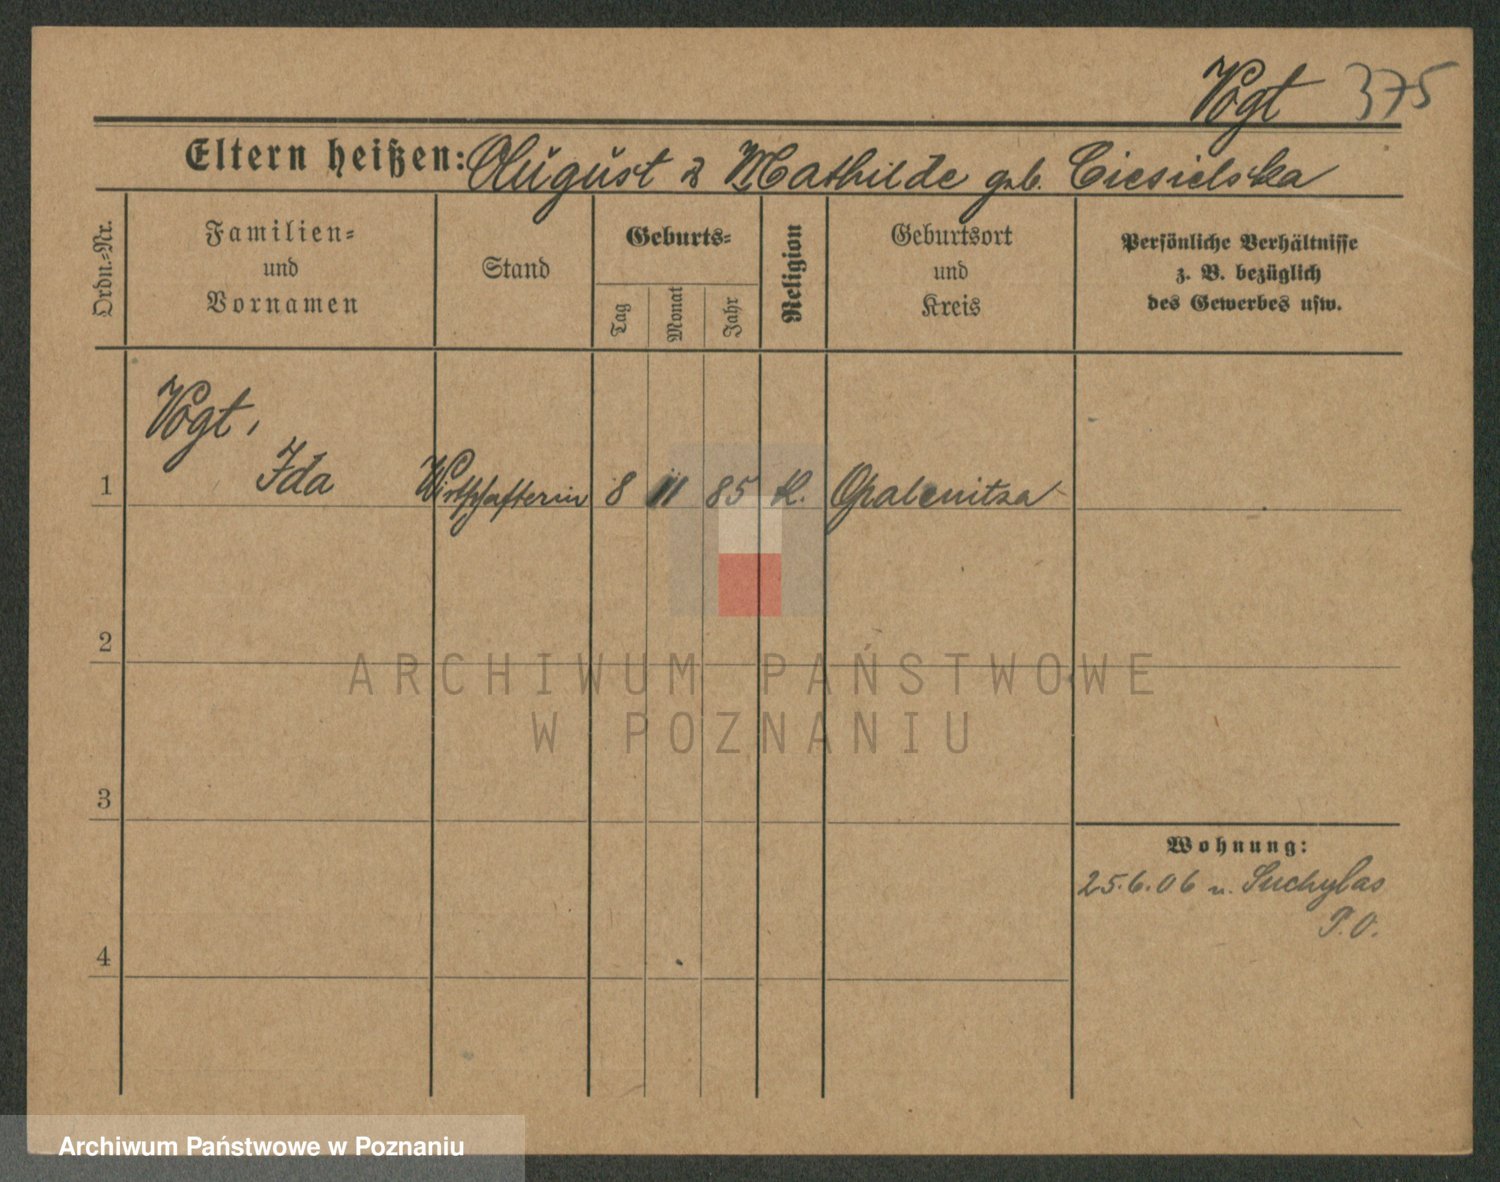 Vogt 375
Eltern heißen: August & Mathilde geb. Ciesielska
Ordn.-Nr.
Familien-
und
Vornamen
Stand
Geburts-
Tag
Monat
Jahr
Religion
Geburtsort
und
Kreis
Persönliche Verhältnisse
z. B. bezüglich
des Gewerbes usw.
Vogt,
1 Ida Wirthschafterin 8 11 85 k. Opalenitza
2
3
4
Wohnung:
25.6.06 n. Suchylas
P.O.
ARCHIWUM PAŃSTWOWE
W POZNANIU
Archiwum Państwowe w Poznaniu